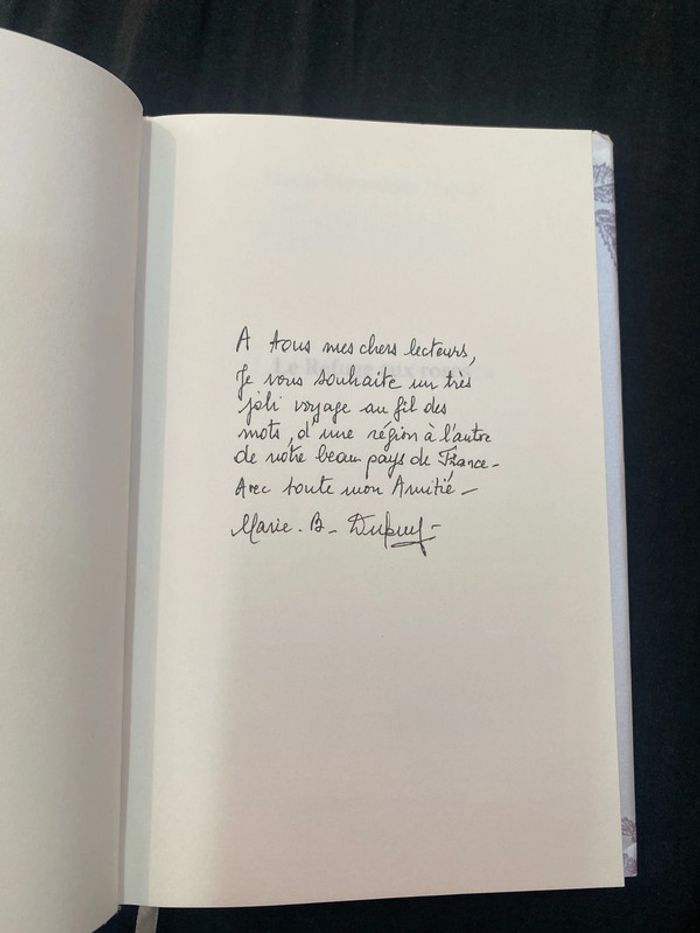 A tous mes chers lecteurs,
Je vous souhaite un très
joli voyage au fil des
mots, d'une région à l'autre
de notre beau pays de France-
Avec toute mon Amitié -
Marie. B- Dupuy-
Le Refuge aux roses